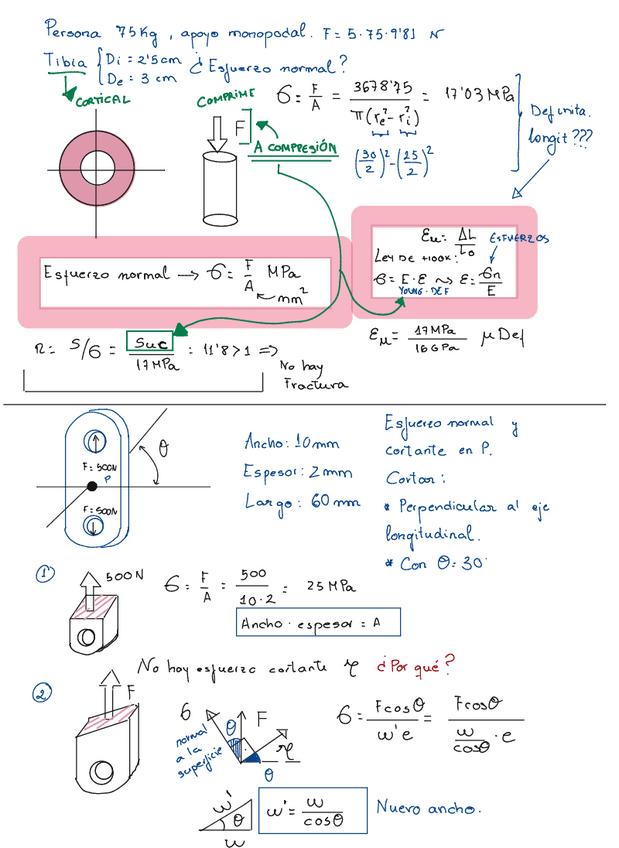 Persona 75Kg, apoyo monopodal. F= 5·75·9'81 N
Tibia { Di = 2'5cm ¿Esfuerzo normal?
De = 3 cm
CORTICAL
COMPRIME
F
A COMPRESIÓN
σ = F/A = 3678'75 / π(re² - ri²) = 17'03 MPa
(30/2)² - (25/2)²
Definita.
longit ???
Esfuerzo normal → σ = F/A MPa
mm²
Eu = ΔL/Lo
ESFUERZOS
LEY DE HOOK:
σ = E·ε ⇝ ε = σn/E
YOUNG·DEF
n = S/σ = Suc / 17MPa = 11'8 > 1 =>
No hay
Fractura
εμ = 17MPa / 16GPa μDef
θ
F=500N
P
F=500N
Ancho: 10mm
Espesor: 2mm
Largo: 60mm
Esfuerzo normal y
cortante en P.
Cortar:
* Perpendicular al eje
longitudinal.
* Con θ=30°
1
500N
σ = F/A = 500 / 10·2 = 25 MPa
Ancho · espesor = A
No hay esfuerzo cortante τ ¿Por qué?
2
F
σ
normal
a la
superficie
θ
F
τ
θ
σ = Fcosθ / w'e = Fcosθ / (w/cosθ · e)
w'
θ
w
w' = w / cosθ
Nuevo ancho.